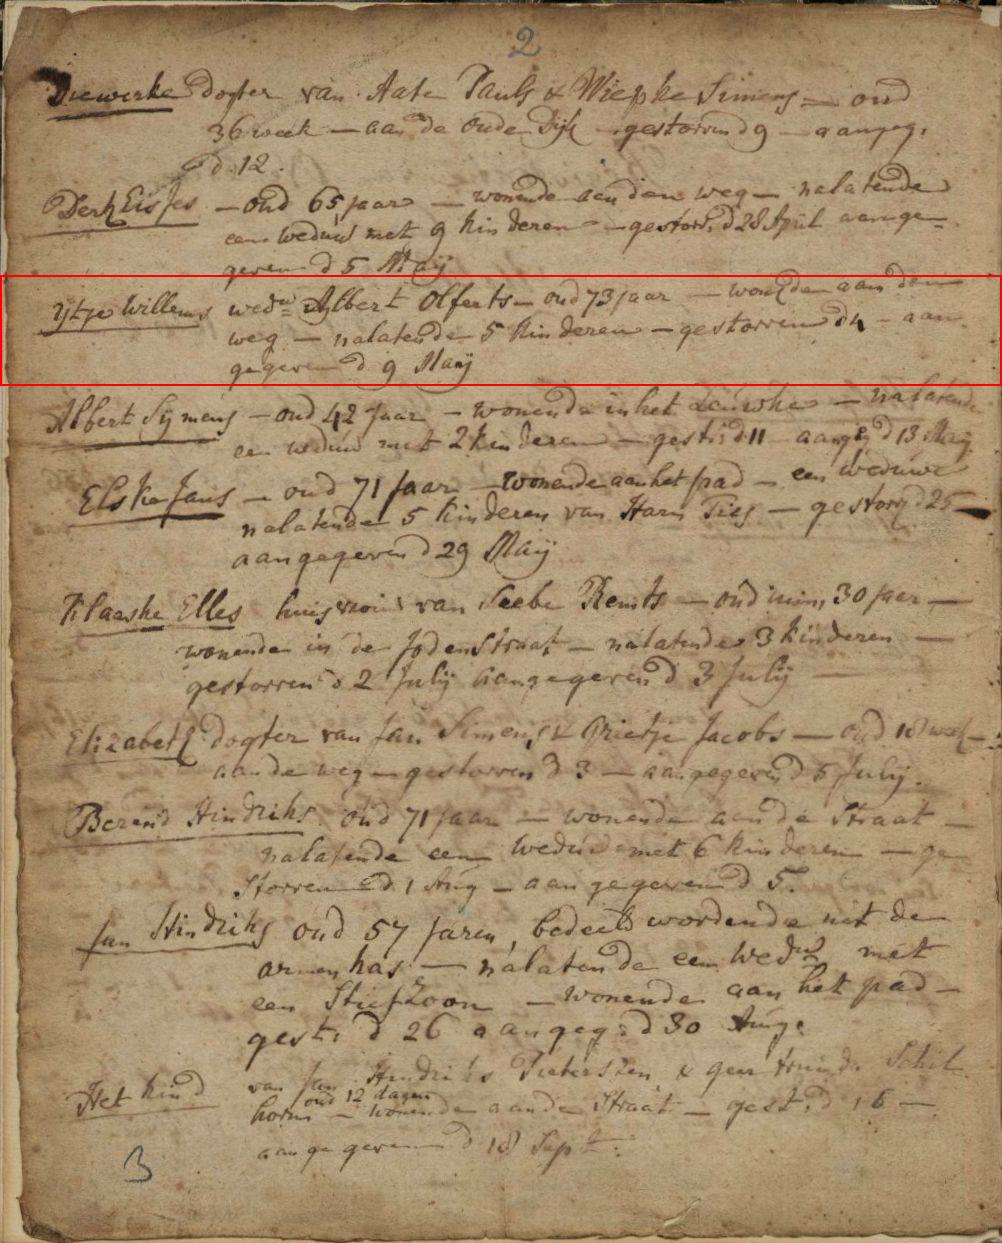 2
Diewerke dogter van Aate Pauls & Wiepke Simens = oud
36 week — aan de oude Dijk — gestorven d 9 — aangeg:
d. 12.
Derk Eisjes — oud 65 jaar — wonende aan den weg — nalatende
een weduwe met 9 kinderen — gestorv: d 28 April aange=
geven d 5 Maij
Ytje Willems wedw= Albert Olferts — oud 73 jaar — wonende aan den
weg — nalatende 5 kinderen — gestorven d 4 — aan
gegeven d 9 Maij
Albert Sijmens — oud 42 jaar — wonende in het — nalatende
een weduw met 2 kinderen — gest: d 11 aangeg d 13 Maij
Elske Jans — oud 71 jaar — wonende aan het pad — een weduwe
nalatende 5 kinderen van Harm — gestorv d 25 —
aangegeven d 29 Maij
Klaaske Elles huisvrou van Seebe Remts — oud ruim 30 jaar —
wonende in de Jodenstraat — nalatende 3 kinderen —
gestorven d 2 Julij aangegeven d 3 Julij —
Elizabeth dogter van Jan Simens & Grietje Jacobs — oud 18 week —
aan de weg — gestorven d 3 — aangegeven d 5 Julij.
Berend Hindriks oud 71 jaar — wonende aan de Straat —
nalatende een weduwe met 6 kinderen — ge
storven d 1 Aug — aangegeven d 5.
Jan Hindriks oud 57 jaren, bedeeld wordende uit de
armen kas — nalatende een wedw met
een Stiefzoon — wonende aan het pad —
gest: d 26 aangeg: d 30 Aug:
Het kind van Jan Hindriks Pietersen & Geertruida Schil
oud 12 dagen
horn — wonende aan de Straat — gest: d 16 —
aangegeven d 18 Sept:
3